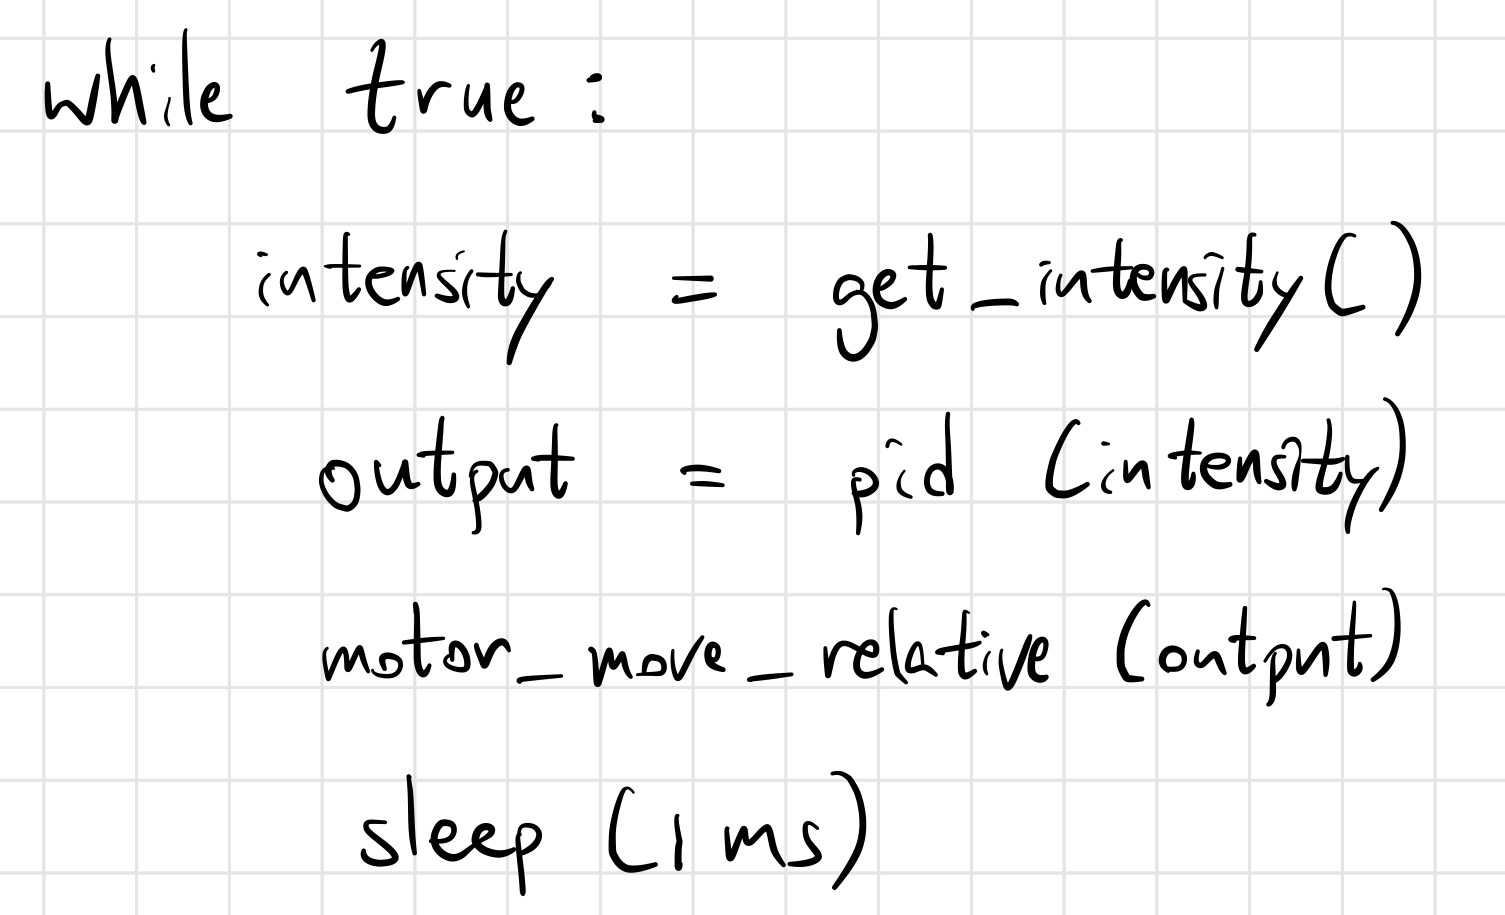 while true:
intensity = get_intensity()
output = pid (intensity)
motor_move_relative (output)
sleep (1 ms)